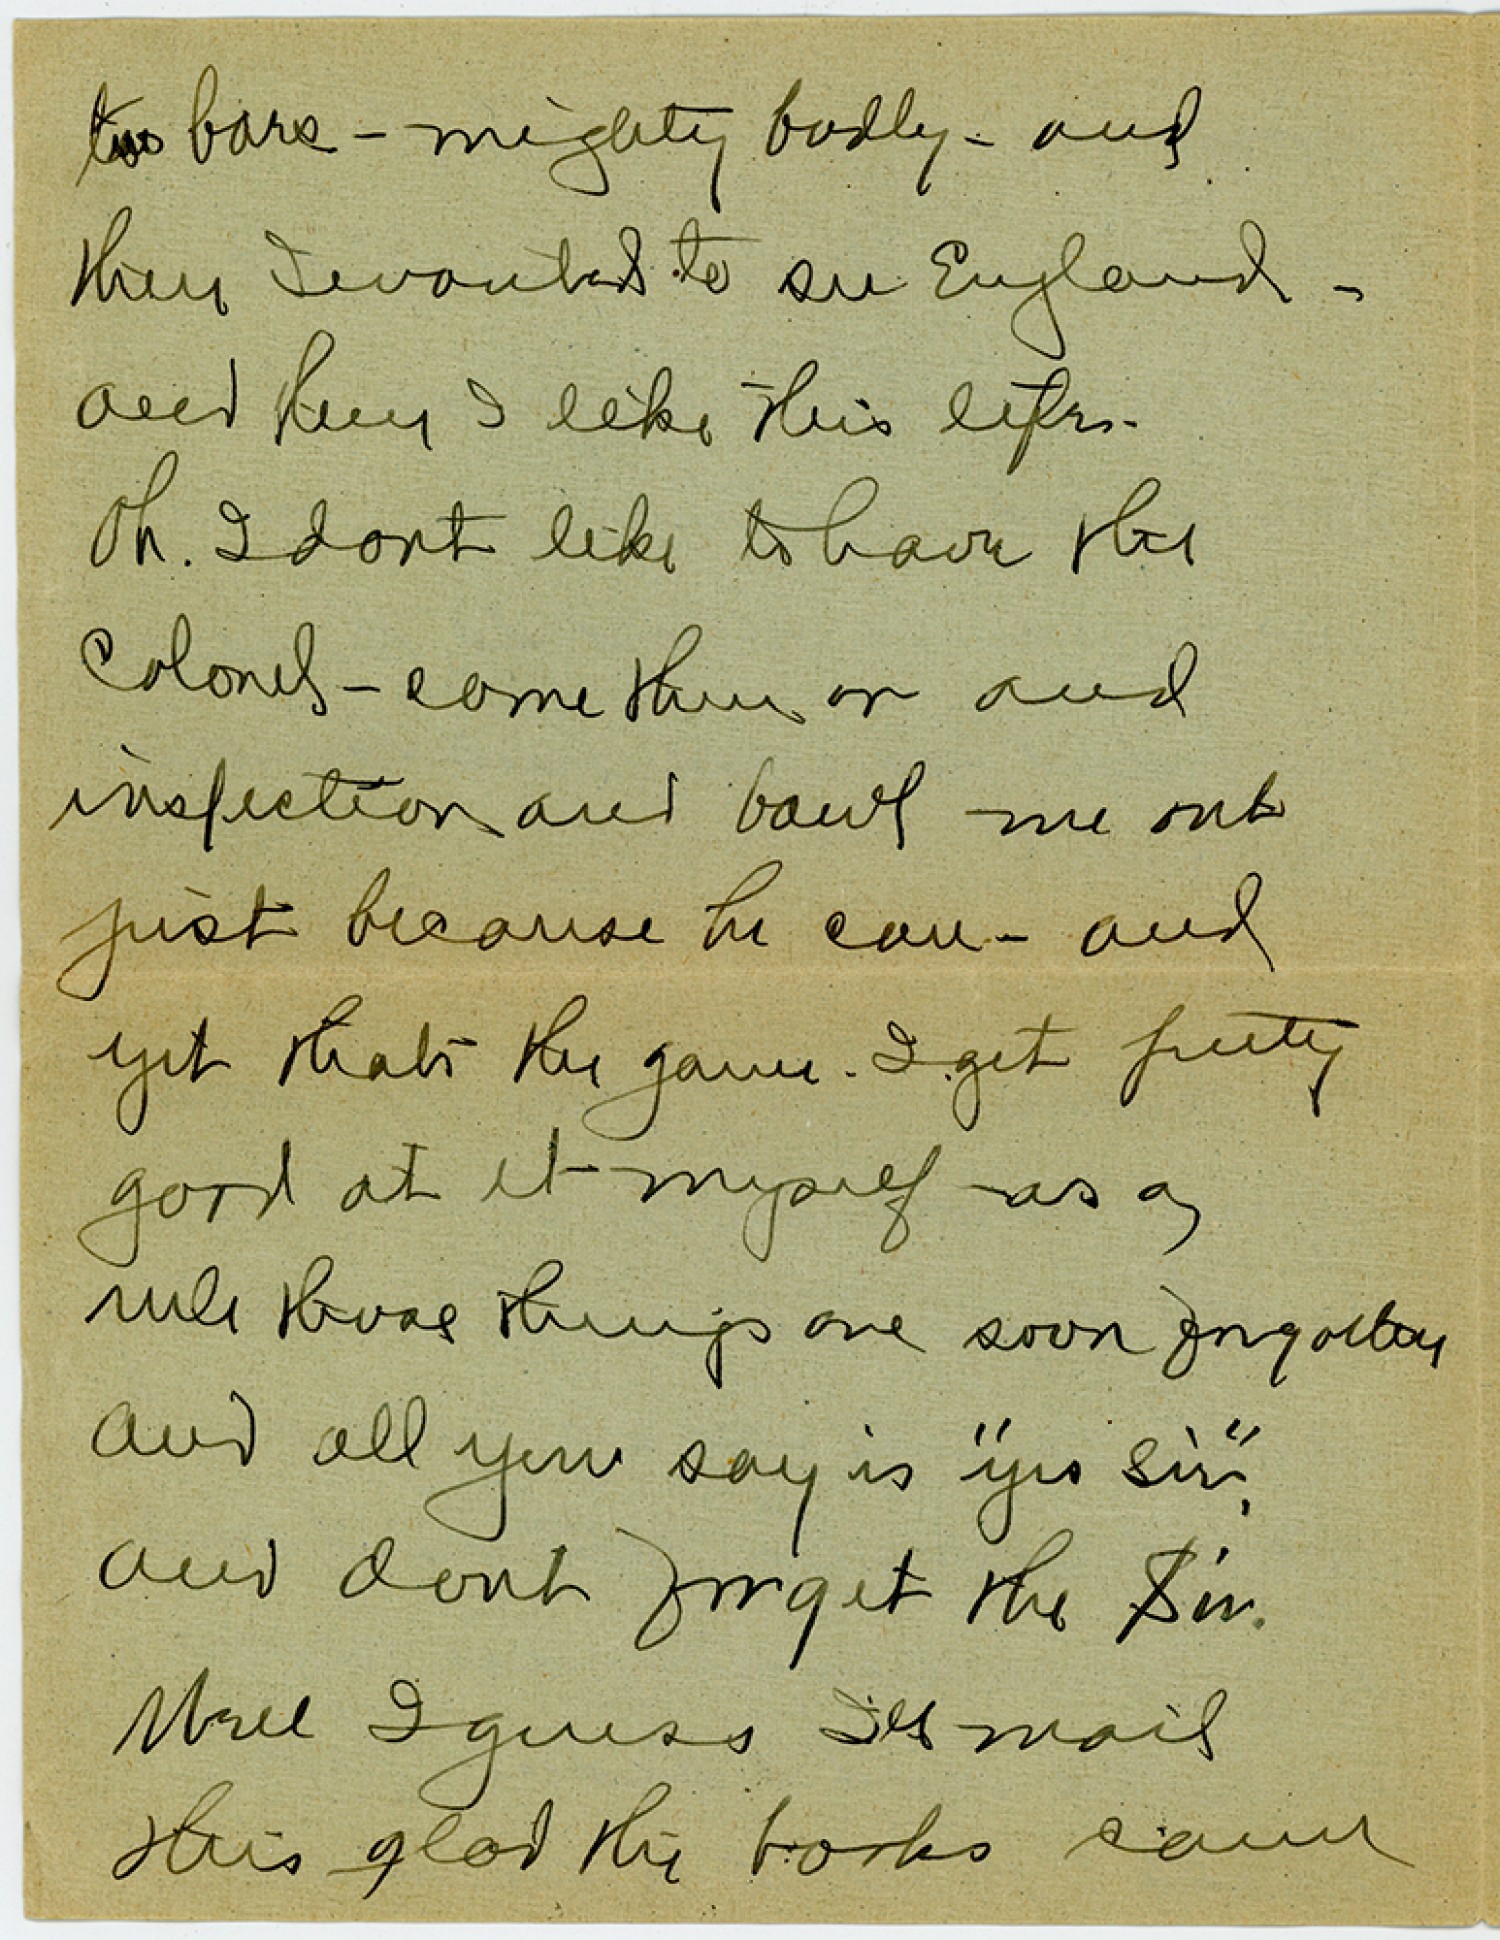 two bars - mighty badly - and
then I wanted to see England -
and then I like this life -
Oh. I dont like to have the
Colonel - come thru on and
inspection and bawl me out
just because he can - and
yet thats the game. I get pretty
good at it myself - as a
rule those things are soon forgotten
and all you say is "yes sir",
and dont forget the Sir.
Well I guess Ill mail
this glad the books came